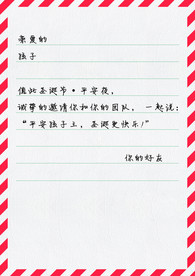 亲爱的
孩子
值此圣诞节·平安夜，
诚挚的邀请你和你的团队，一起说：
“平安孩子王，圣诞更快乐！”
你的好友